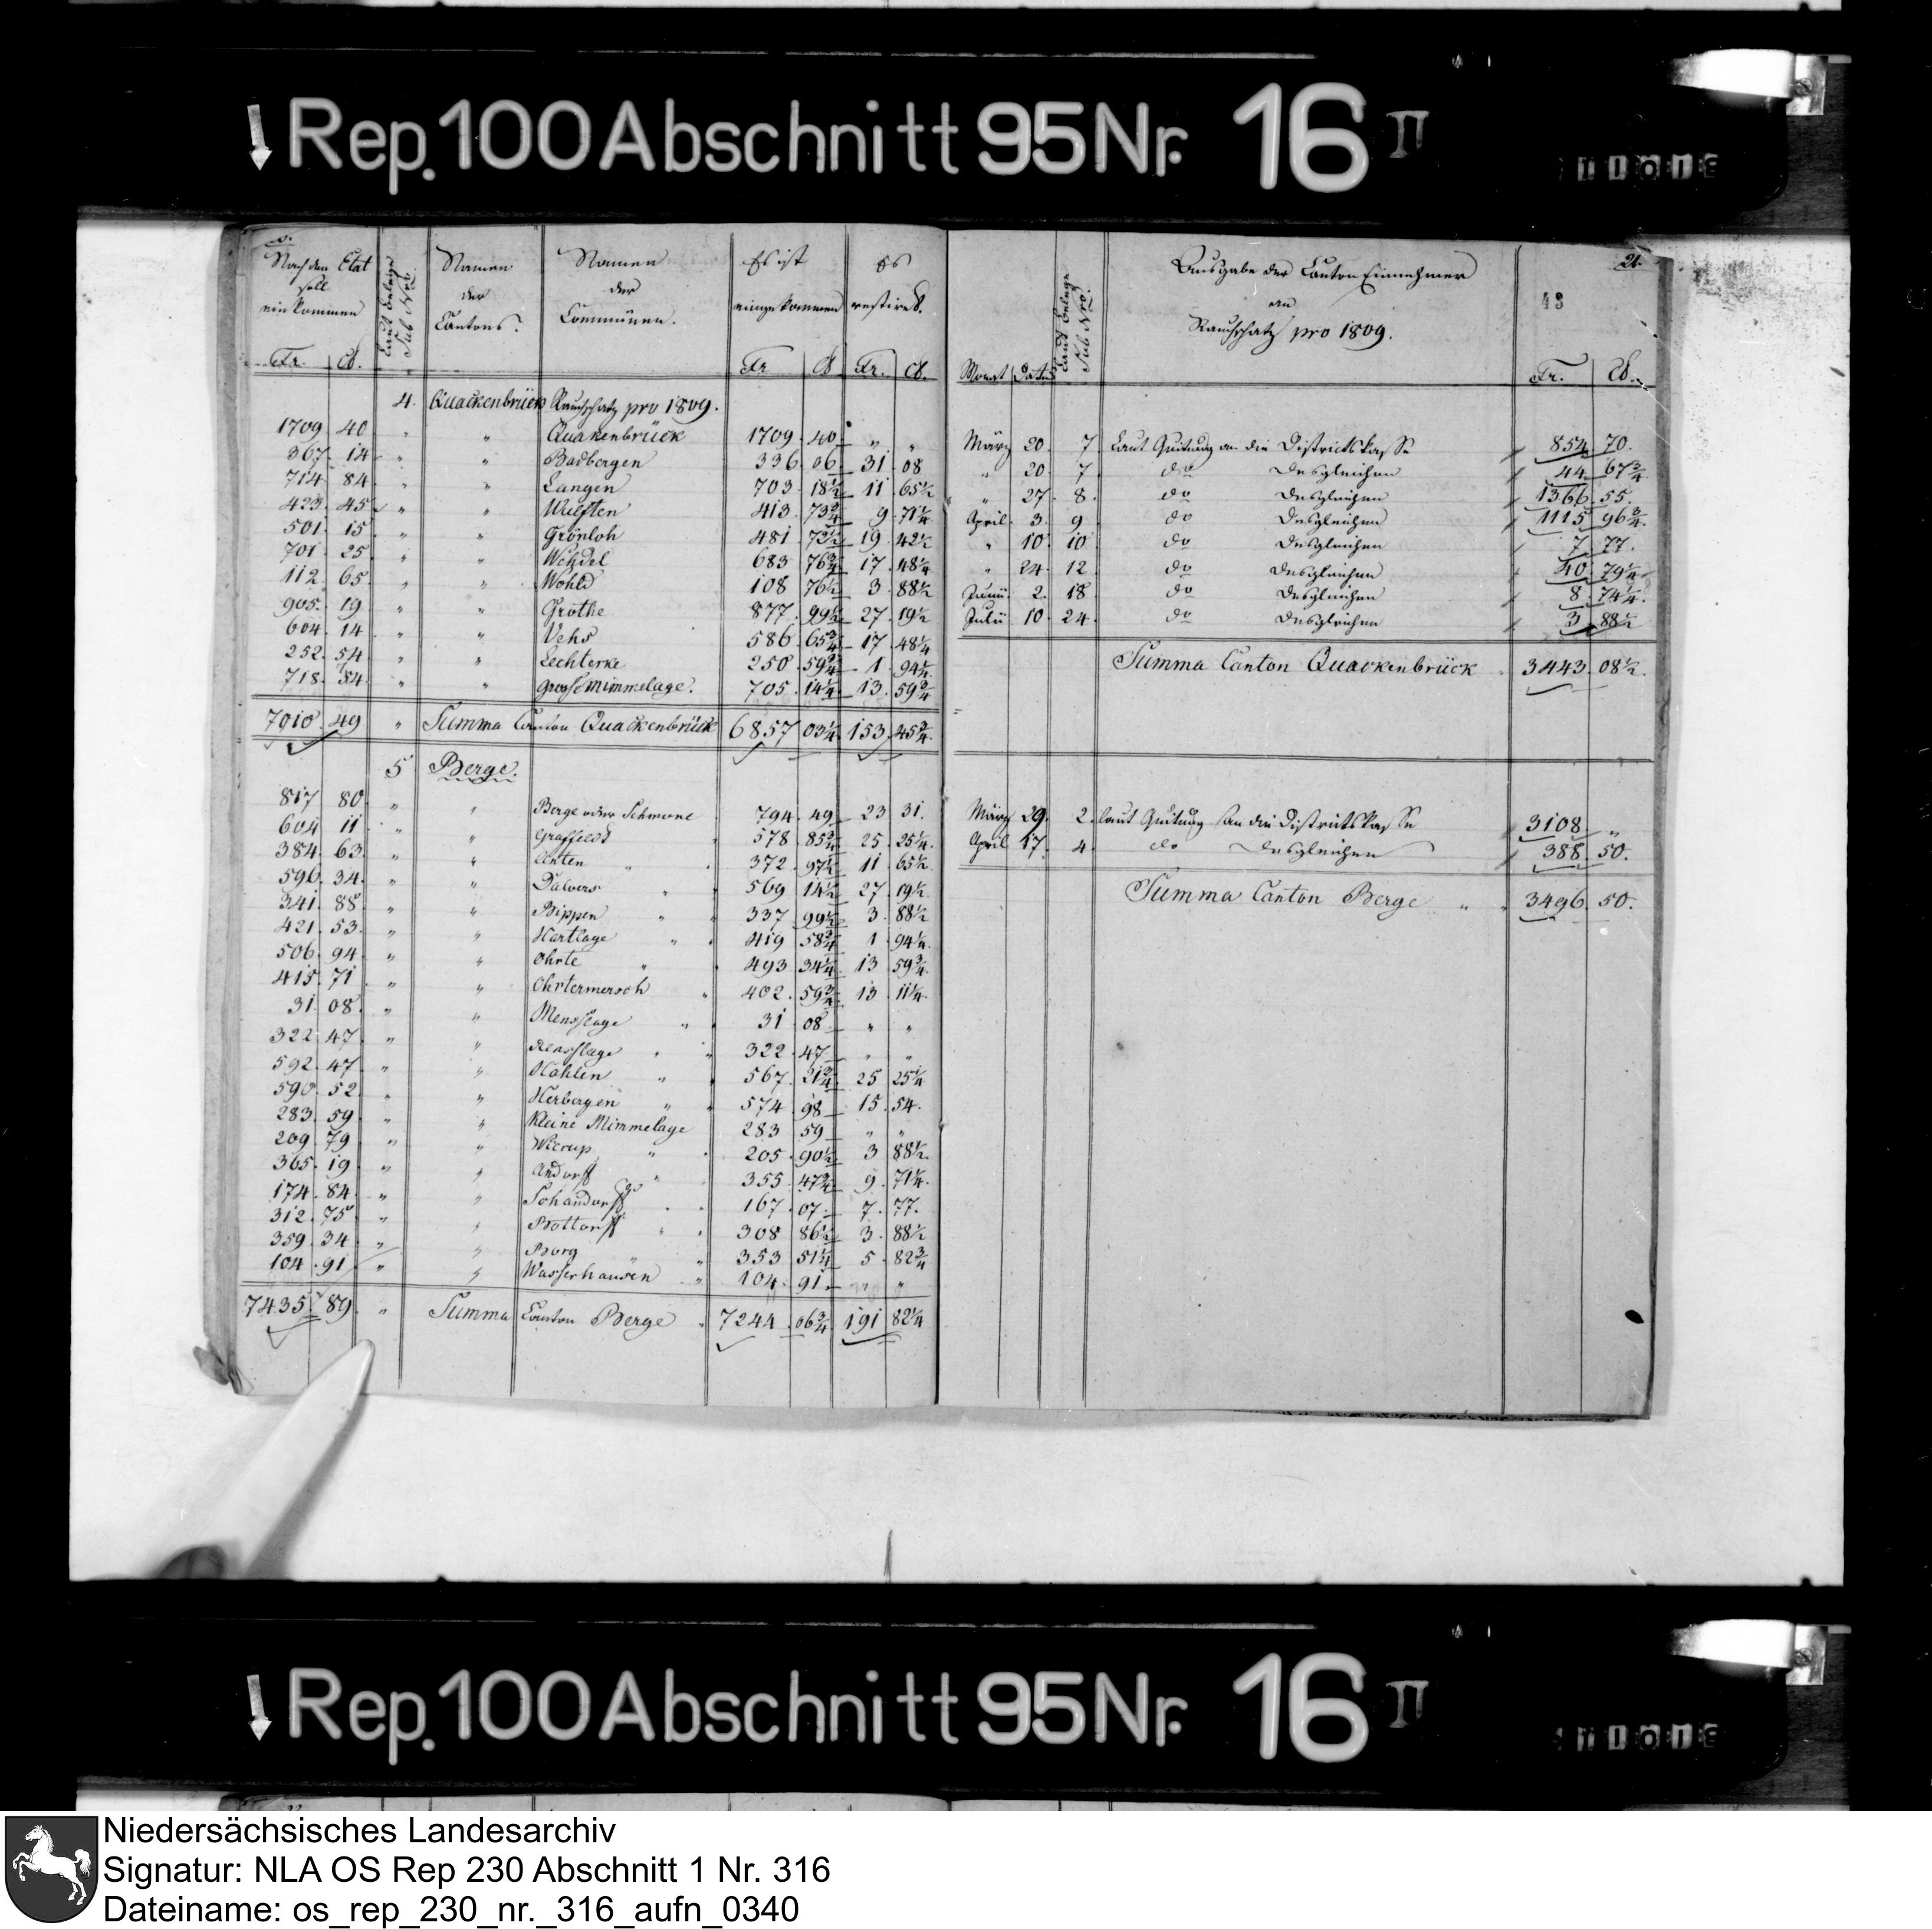 Rep. 100 Abschnitt 95 Nr. 16 II
20.
Nach den Etat soll einkommen
Laut Belege Sub Nro.
Namen der Cantons.
Namen der Communen.
Es ist eingekommen
Es restiret.
Fr. Ct. Fr. Ct. Fr. Ct.
4. Quackenbrück Rauchschatz pro 1809.
1709 40 " " Quakenbrück 1709 40 " "
367 14 " " Badbergen 336 06 31 08
714 84 " " Langen 703 18½ 11 65½
423 45 " " Wulften 413 73¾ 9 71¼
501 15 " " Grönloh 481 72½ 19 42½
701 25 " " Wehdel 683 76¾ 17 48¼
112 65 " " Wohld 108 76½ 3 88½
905 19 " " Gröthe 877 99½ 27 19½
604 14 " " Vehs 586 65¾ 17 48¼
252 54 " " Lechterke 250 59¾ 1 94¼
718 74 " " Grosse Mimmelage. 705 14¼ 13 59¾
7010 49 " Summa Canton Quackenbrück 6857 03¼ 153 45¾
5 Berge.
817 80 " " Berge oder Schmone 794 49 23 31.
604 11 " " Graffeldt 578 85¾ 25 25¼
384 63 " " Anten " 372 97½ 11 65½
596 34 " " Dalvers " 569 14½ 27 19½
341 88 " " Bippen " 337 99½ 3 88½
421 53 " " Hartlage " 419 58¾ 1 94¼
506 94 " " Ohrte " 493 34¼ 13 59¾
415 71 " " Ohrtermersch " 402 59¾ 13 11¼
31 08 " " Menslage " 31 08 " "
322 47 " " Renslage " 322 47 " "
592 47 " " Hahlen " 567 21¾ 25 25¼
590 52 " " Herbergen " 574 98 15 54.
283 59 " " Kleine Mimmelage 283 59 " "
209 79 " " Wierup " 205 90½ 3 88½
365 19 " " Andorff " 355 47¾ 9 71¼
174 84 " " Schandorff " 167 07 7 77.
312 75 " " Bottorff " 308 86½ 3 88½
359 34 " " Borg " 353 51¼ 5 82¾
104 91 " " Wasserhausen " 104 91 " "
7435 89 " Summa Canton Berge " 7244 06¾ 191 82¼
21.
43
Monat Datum
Laut Belege Sub Nro.
Ausgabe der Canton Einnehmer
an
Rauchschatz pro 1809.
Fr. Ct.
März 20 7 Laut Quitung an die Districtskasse 854 70.
" 20 7 do Desgleichen 44 67¾
" 27 8 do Desgleichen 1366 55.
April 3 9 do Desgleichen 1115 96¾
" 10 10 do Desgleichen 7 77.
" 24 12 do Desgleichen 40 79¼
Junii 2 18 do Desgleichen 8 74¼
Julii 10 24 do Desgleichen 3 88½
Summa Canton Quackenbrück 3443 08½
März 29 2 laut Quitung an die Districtskasse 3108 "
April 17 4 do Desgleichen 388 50.
Summa Canton Berge " 3496 50.
Rep. 100 Abschnitt 95 Nr. 16 II
Niedersächsisches Landesarchiv
Signatur: NLA OS Rep 230 Abschnitt 1 Nr. 316
Dateiname: os_rep_230_nr._316_aufn_0340